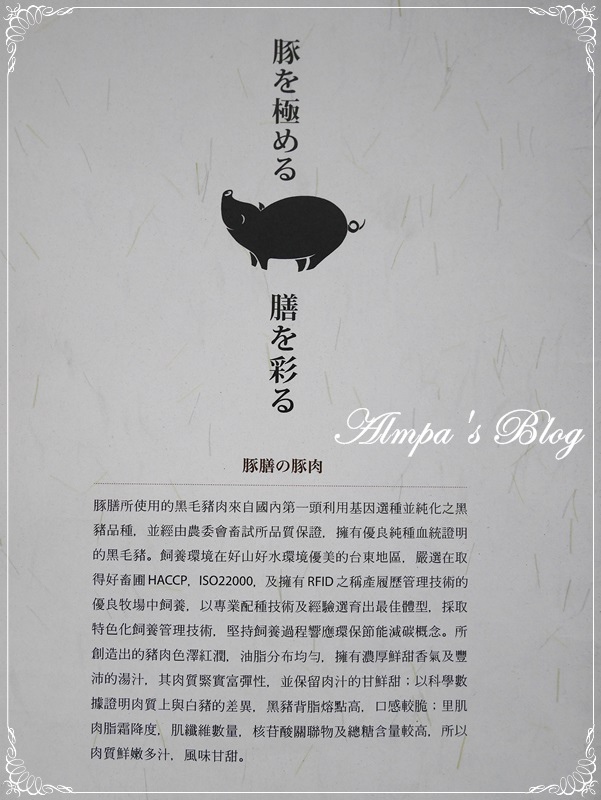 豚を極める
膳を彩る
Almpa's Blog
豚膳の豚肉
豚膳所使用的黑毛豬肉來自國內第一頭利用基因選種並純化之黑
豬品種，並經由農委會畜試所品質保證，擁有優良純種血統證明
的黑毛豬。飼養環境在好山好水環境優美的台東地區，嚴選在取
得好畜圃HACCP，ISO22000，及擁有RFID之稱產履歷管理技術的
優良牧場中飼養，以專業配種技術及經驗選育出最佳體型，採取
特色化飼養管理技術，堅持飼養過程響應環保節能減碳概念。所
創造出的豬肉色澤紅潤，油脂分布均勻，擁有濃厚鮮甜香氣及豐
沛的湯汁，其肉質緊實富彈性，並保留肉汁的甘鮮甜；以科學數
據證明肉質上與白豬的差異，黑豬背脂熔點高，口感較脆；里肌
肉脂霜降度，肌纖維數量，核苷酸關聯物及總糖含量較高，所以
肉質鮮嫩多汁，風味甘甜。